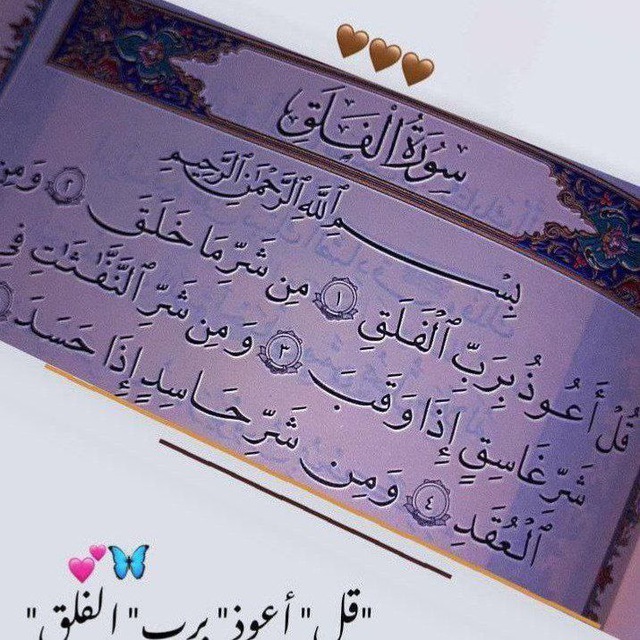 سُورَةُ الْفَلَقِ
بِسْمِ ٱللَّهِ ٱلرَّحْمَٰنِ ٱلرَّحِيمِ
قُلْ أَعُوذُ بِرَبِّ ٱلْفَلَقِ ١ مِن شَرِّ مَا خَلَقَ ٢ وَمِن
شَرِّ غَاسِقٍ إِذَا وَقَبَ ٣ وَمِن شَرِّ ٱلنَّفَّٰثَٰتِ فِى
ٱلْعُقَدِ ٤ وَمِن شَرِّ حَاسِدٍ إِذَا حَسَدَ
"قل" أعوذ" برب" الفلق"